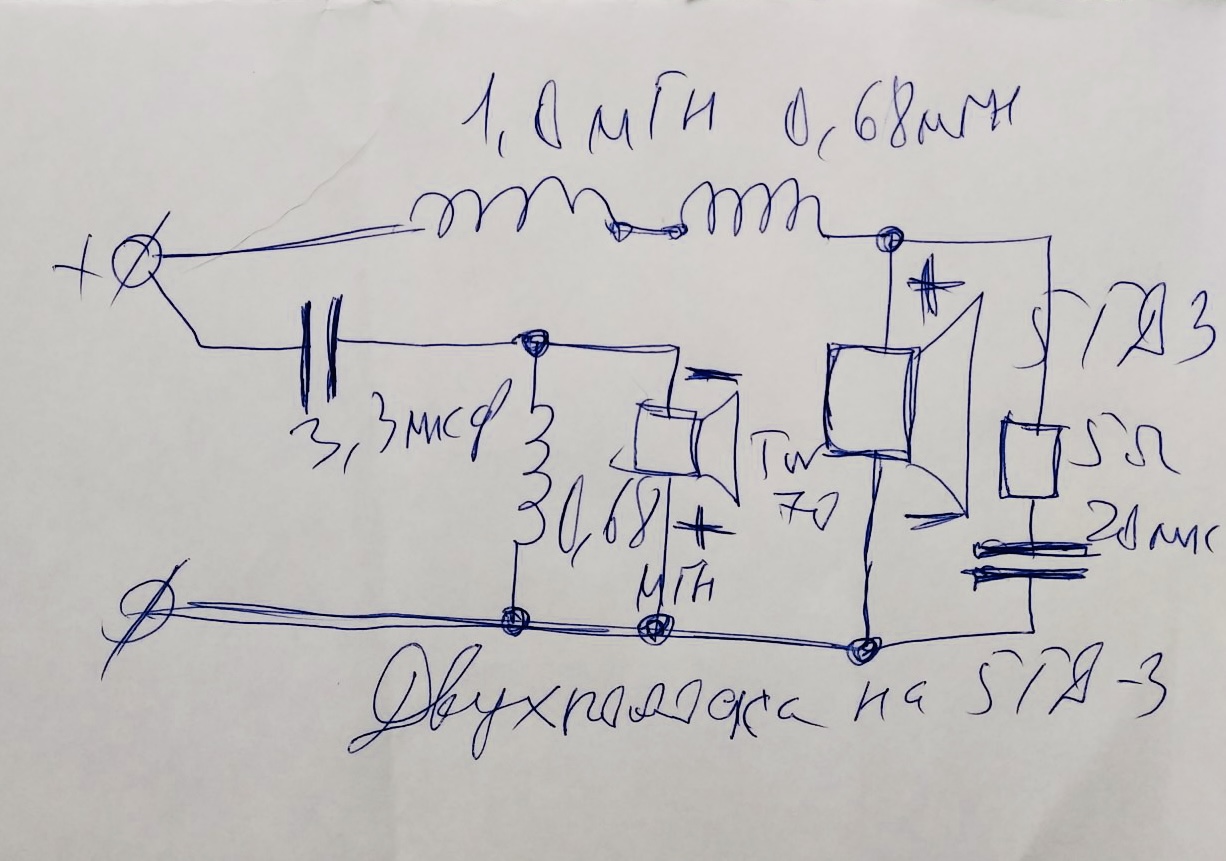 1,0 мГн 0,68 мГн
+
+
5ГД3
3,3 мкф
−
0,68
мГн
+
Tw
70
5Ω
20 мк
−
Двухполоска на 5ГД-3